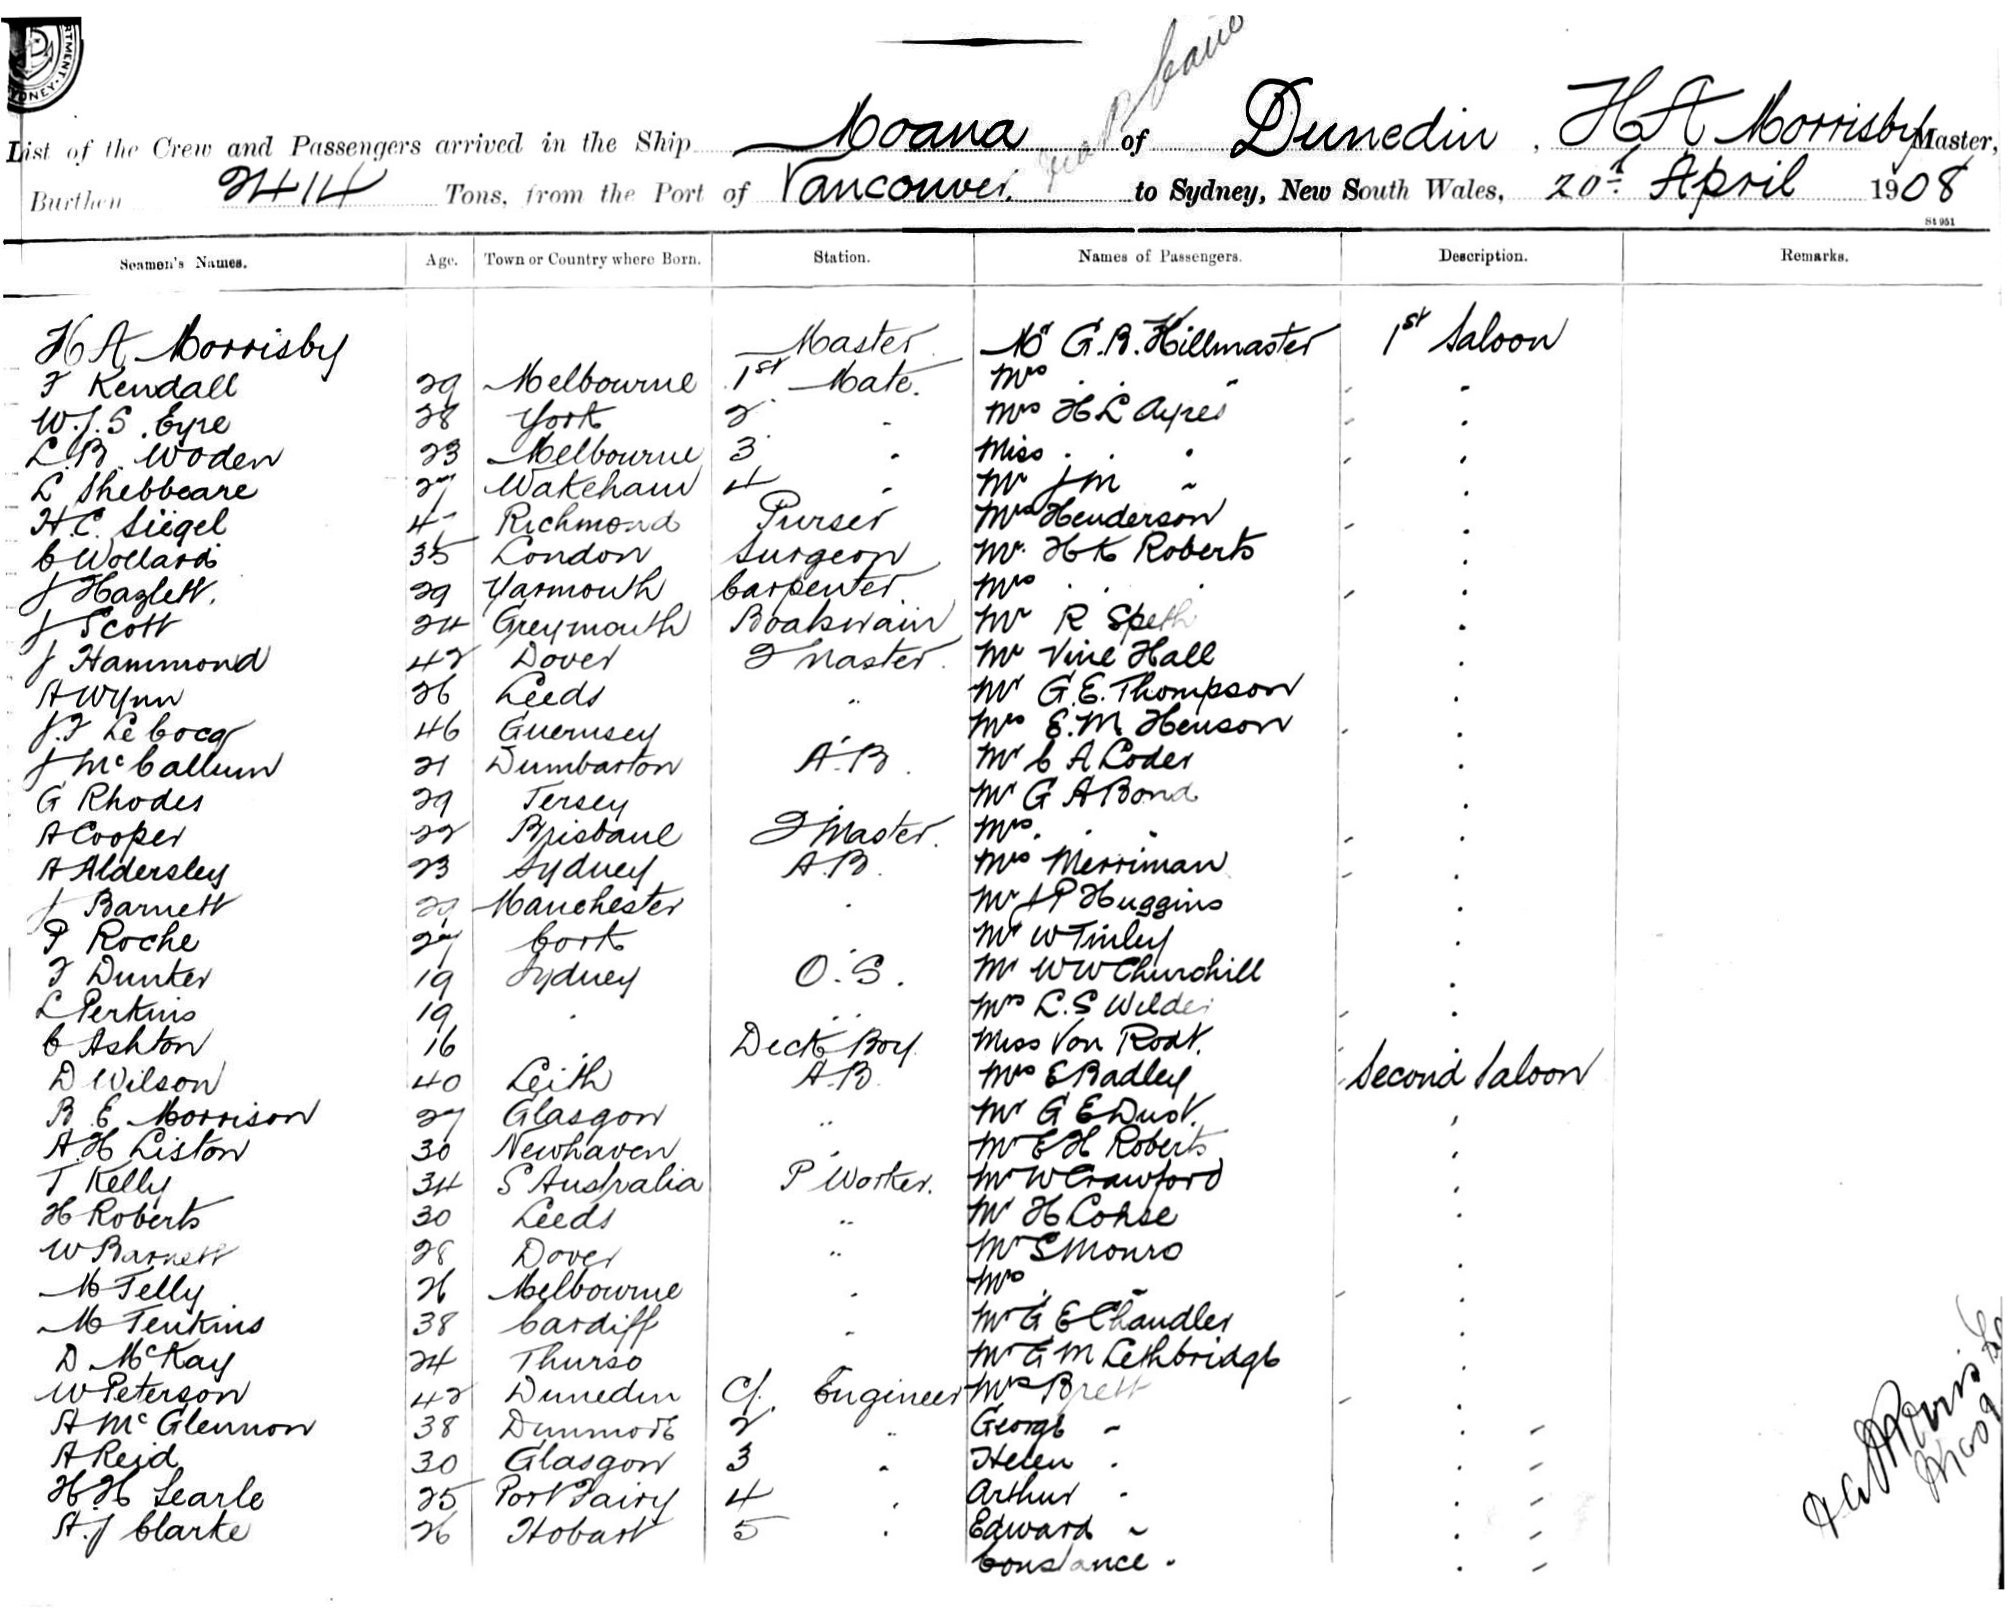 RTMENT. SYDNEY
List of the Crew and Passengers arrived in the Ship Moana of Dunedin, H A Morrisby Master,
Burthen 2414 Tons, from the Port of Vancouver. to Sydney, New South Wales, 20th April 1908
St 951
Seamen's Names. Age. Town or Country where Born. Station. Names of Passengers. Description. Remarks.
H A Morrisby Master Mr G.B. Hillmaster 1st Saloon
F Kendall 29 Melbourne 1st Mate. Mrs . . "
W.J.S. Eyre 28 York 2 " Mrs H L Ayres
L.B. Woden 23 Melbourne 3 " Miss . "
L Shebbeare 27 Wakeham 4 " Mr J M "
H.C. Siegel 4 Richmond Purser Mrs Henderson
C Wollard 35 London Surgeon Mr. H K Roberts
J Hazlett. 29 Yarmouth Carpenter Mrs . .
J Scott 24 Greymouth Boatswain Mr R Speth
J Hammond 42 Dover Q Master. Mr Vine Hall
A Wynn 26 Leeds " Mr G.E. Thompson
J.F Le Cocq 46 Guernsey " Mrs E.M. Henson
J McCallum 21 Dumbarton A.B. Mr C A Loder
G Rhodes 29 Jersey " Mr G A Bond
A Cooper 22 Brisbane Q Master. Mrs . "
A Aldersley 23 Sydney A.B. Mrs Merriman
J Barnett 29 Manchester " Mr J P Huggins
P Roche 27 Cork " Mr W Tinley
F Dunker 19 Sydney O.S. Mr W W Churchill
L Perkins 19 " " Mrs L.S Wilder
C Ashton 16 " Deck Boy Miss Von Rodt.
D Wilson 40 Leith A.B. Mrs E Badley Second Saloon
R E Morrison 27 Glasgow " Mr G E Dust.
A.H Liston 30 Newhaven " Mr E H Roberts
T Kelly 34 S Australia P Worker. Mr W Crawford
H Roberts 30 Leeds " Mr H Cohse
W Barnett 28 Dover " Mr S Monro
M Jelly 26 Melbourne " Mrs . "
M Jenkins 38 Cardiff " Mr G E Chandler
D McKay 24 Thurso Mr G M Lethbridge
W Peterson 42 Dunedin Cf. Engineer Mrs Brett
A McGlennon 38 Dunmore 2 " George "
A Reid 30 Glasgow 3 " Helen "
H.H Searle 25 Port Fairy 4 " Arthur "
A.J Clarke 26 Hobart 5 " Edward "
Constance "